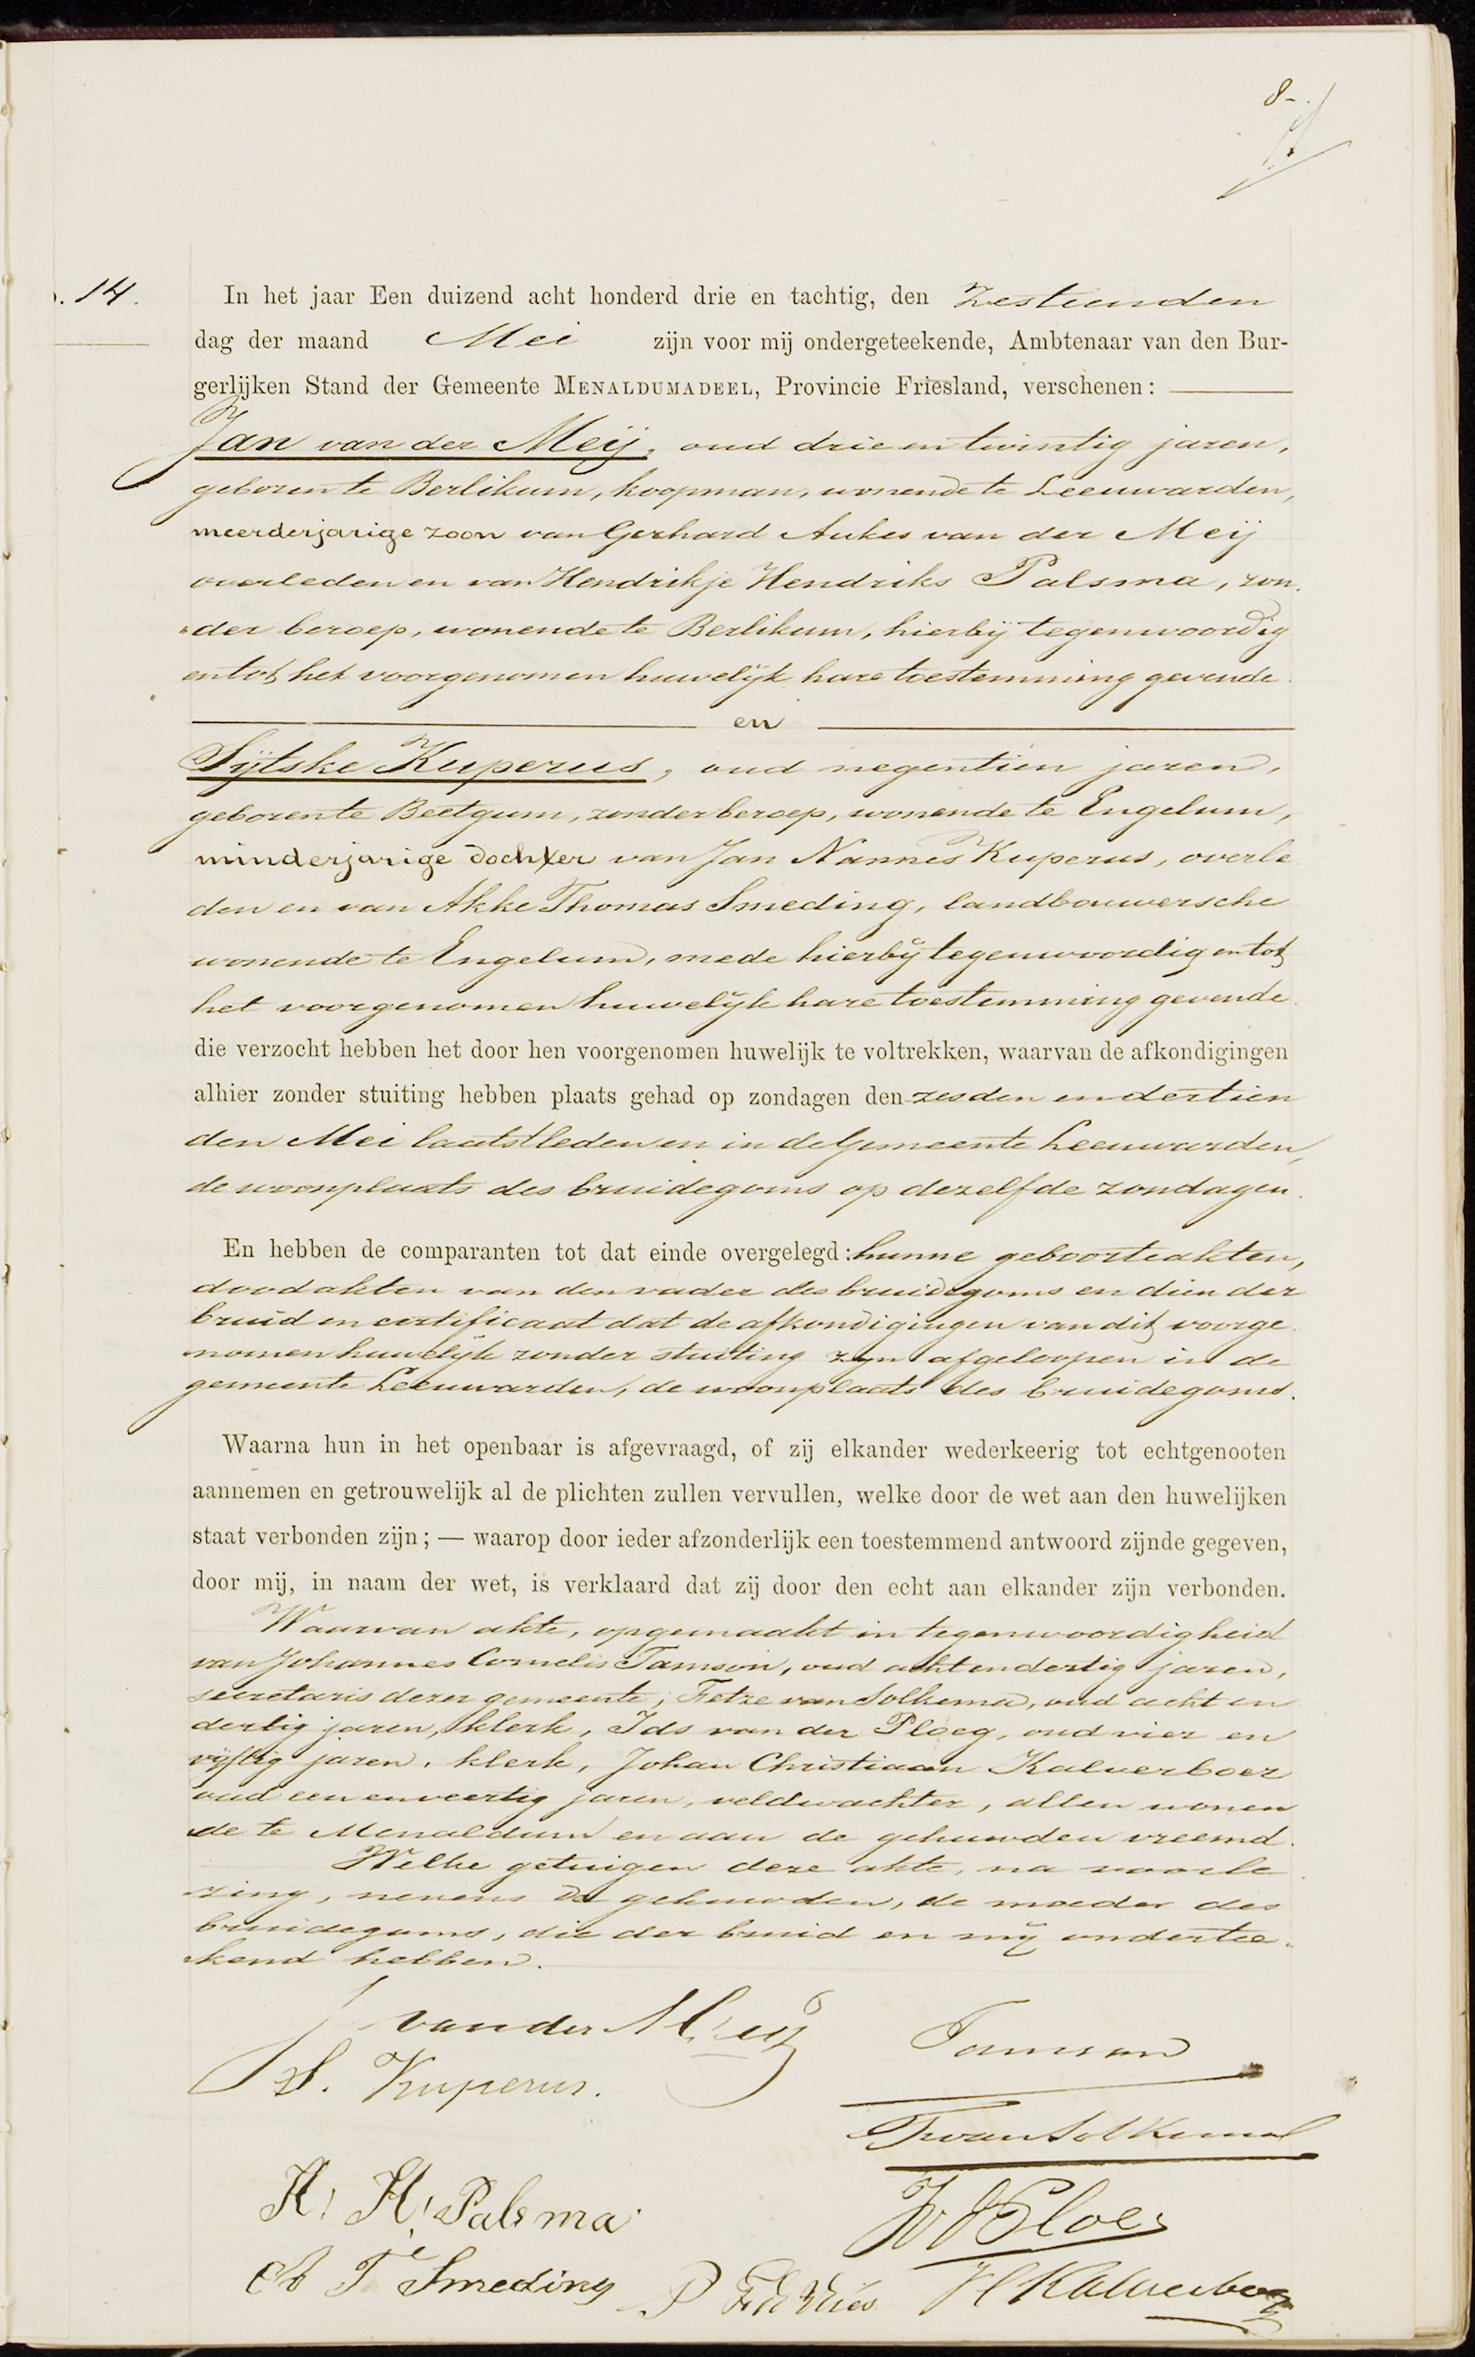 8-.
. 14.
In het jaar Een duizend acht honderd drie en tachtig, den zestienden
dag der maand Mei zijn voor mij ondergeteekende, Ambtenaar van den Bur-
gerlijken Stand der Gemeente MENALDUMADEEL, Provincie Friesland, verschenen:
Jan van der Meij, oud drie en twintig jaren,
geboren te Berlikum, koopman, wonende te Leeuwarden,
meerderjarige zoon van Gerhard Aukes van der Meij
overleden en van Hendrikje Hendriks Palsma, zon-
der beroep, wonende te Berlikum, hierbij tegenwoordig
en tot het voorgenomen huwelijk hare toestemming gevende
en
Sijtske Kuperus, oud negentien jaren,
geboren te Beetgum, zonder beroep, wonende te Engelum,
minderjarige dochter van Jan Nannes Kuperus, overle
den en van Akke Thomas Smeding, landbouwersche
wonende te Engelum, mede hierbij tegenwoordig en tot
het voorgenomen huwelijk hare toestemming gevende.
die verzocht hebben het door hen voorgenomen huwelijk te voltrekken, waarvan de afkondigingen
alhier zonder stuiting hebben plaats gehad op zondagen den zesden en dertien
den Mei laatstleden en in de Gemeente Leeuwarden,
de woonplaats des bruidegoms op dezelfde zondagen.
En hebben de comparanten tot dat einde overgelegd: hunne geboorteakten,
doodakten van den vader des bruidegoms en dien der
bruid en certificaat dat de afkondigingen van dit voorge
nomen huwelijk zonder stuiting zijn afgeloopen in de
gemeente Leeuwarden, de woonplaats des bruidegoms.
Waarna hun in het openbaar is afgevraagd, of zij elkander wederkeerig tot echtgenooten
aannemen en getrouwelijk al de plichten zullen vervullen, welke door de wet aan den huwelijken
staat verbonden zijn; — waarop door ieder afzonderlijk een toestemmend antwoord zijnde gegeven,
door mij, in naam der wet, is verklaard dat zij door den echt aan elkander zijn verbonden.
Waarvan akte, opgemaakt in tegenwoordigheid
van Johannes Cornelis Tamson, oud acht en dertig jaren,
secretaris dezer gemeente, Fetze van Solkema, oud acht en
dertig jaren, klerk, Ids van der Ploeg, oud vier en
vijftig jaren, klerk, Johan Christiaan Kalverboer
oud een en veertig jaren, veldwachter, allen wonen
de te Menaldum en aan de gehuwden vreemd.
Welke getuigen deze akte, na voorle
zing, nevens de gehuwden, de moeder des
bruidegoms, die der bruid en mij ondertee-
kend hebben.
J van der Meij
Tamson
S. Kuperus.
F van Solkema
H. H. Palsma
IvdPloeg
A T Smeding
JCKalverboer